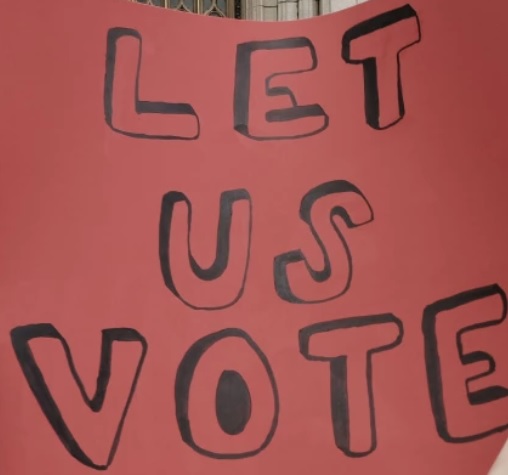 LET
US
VOTE